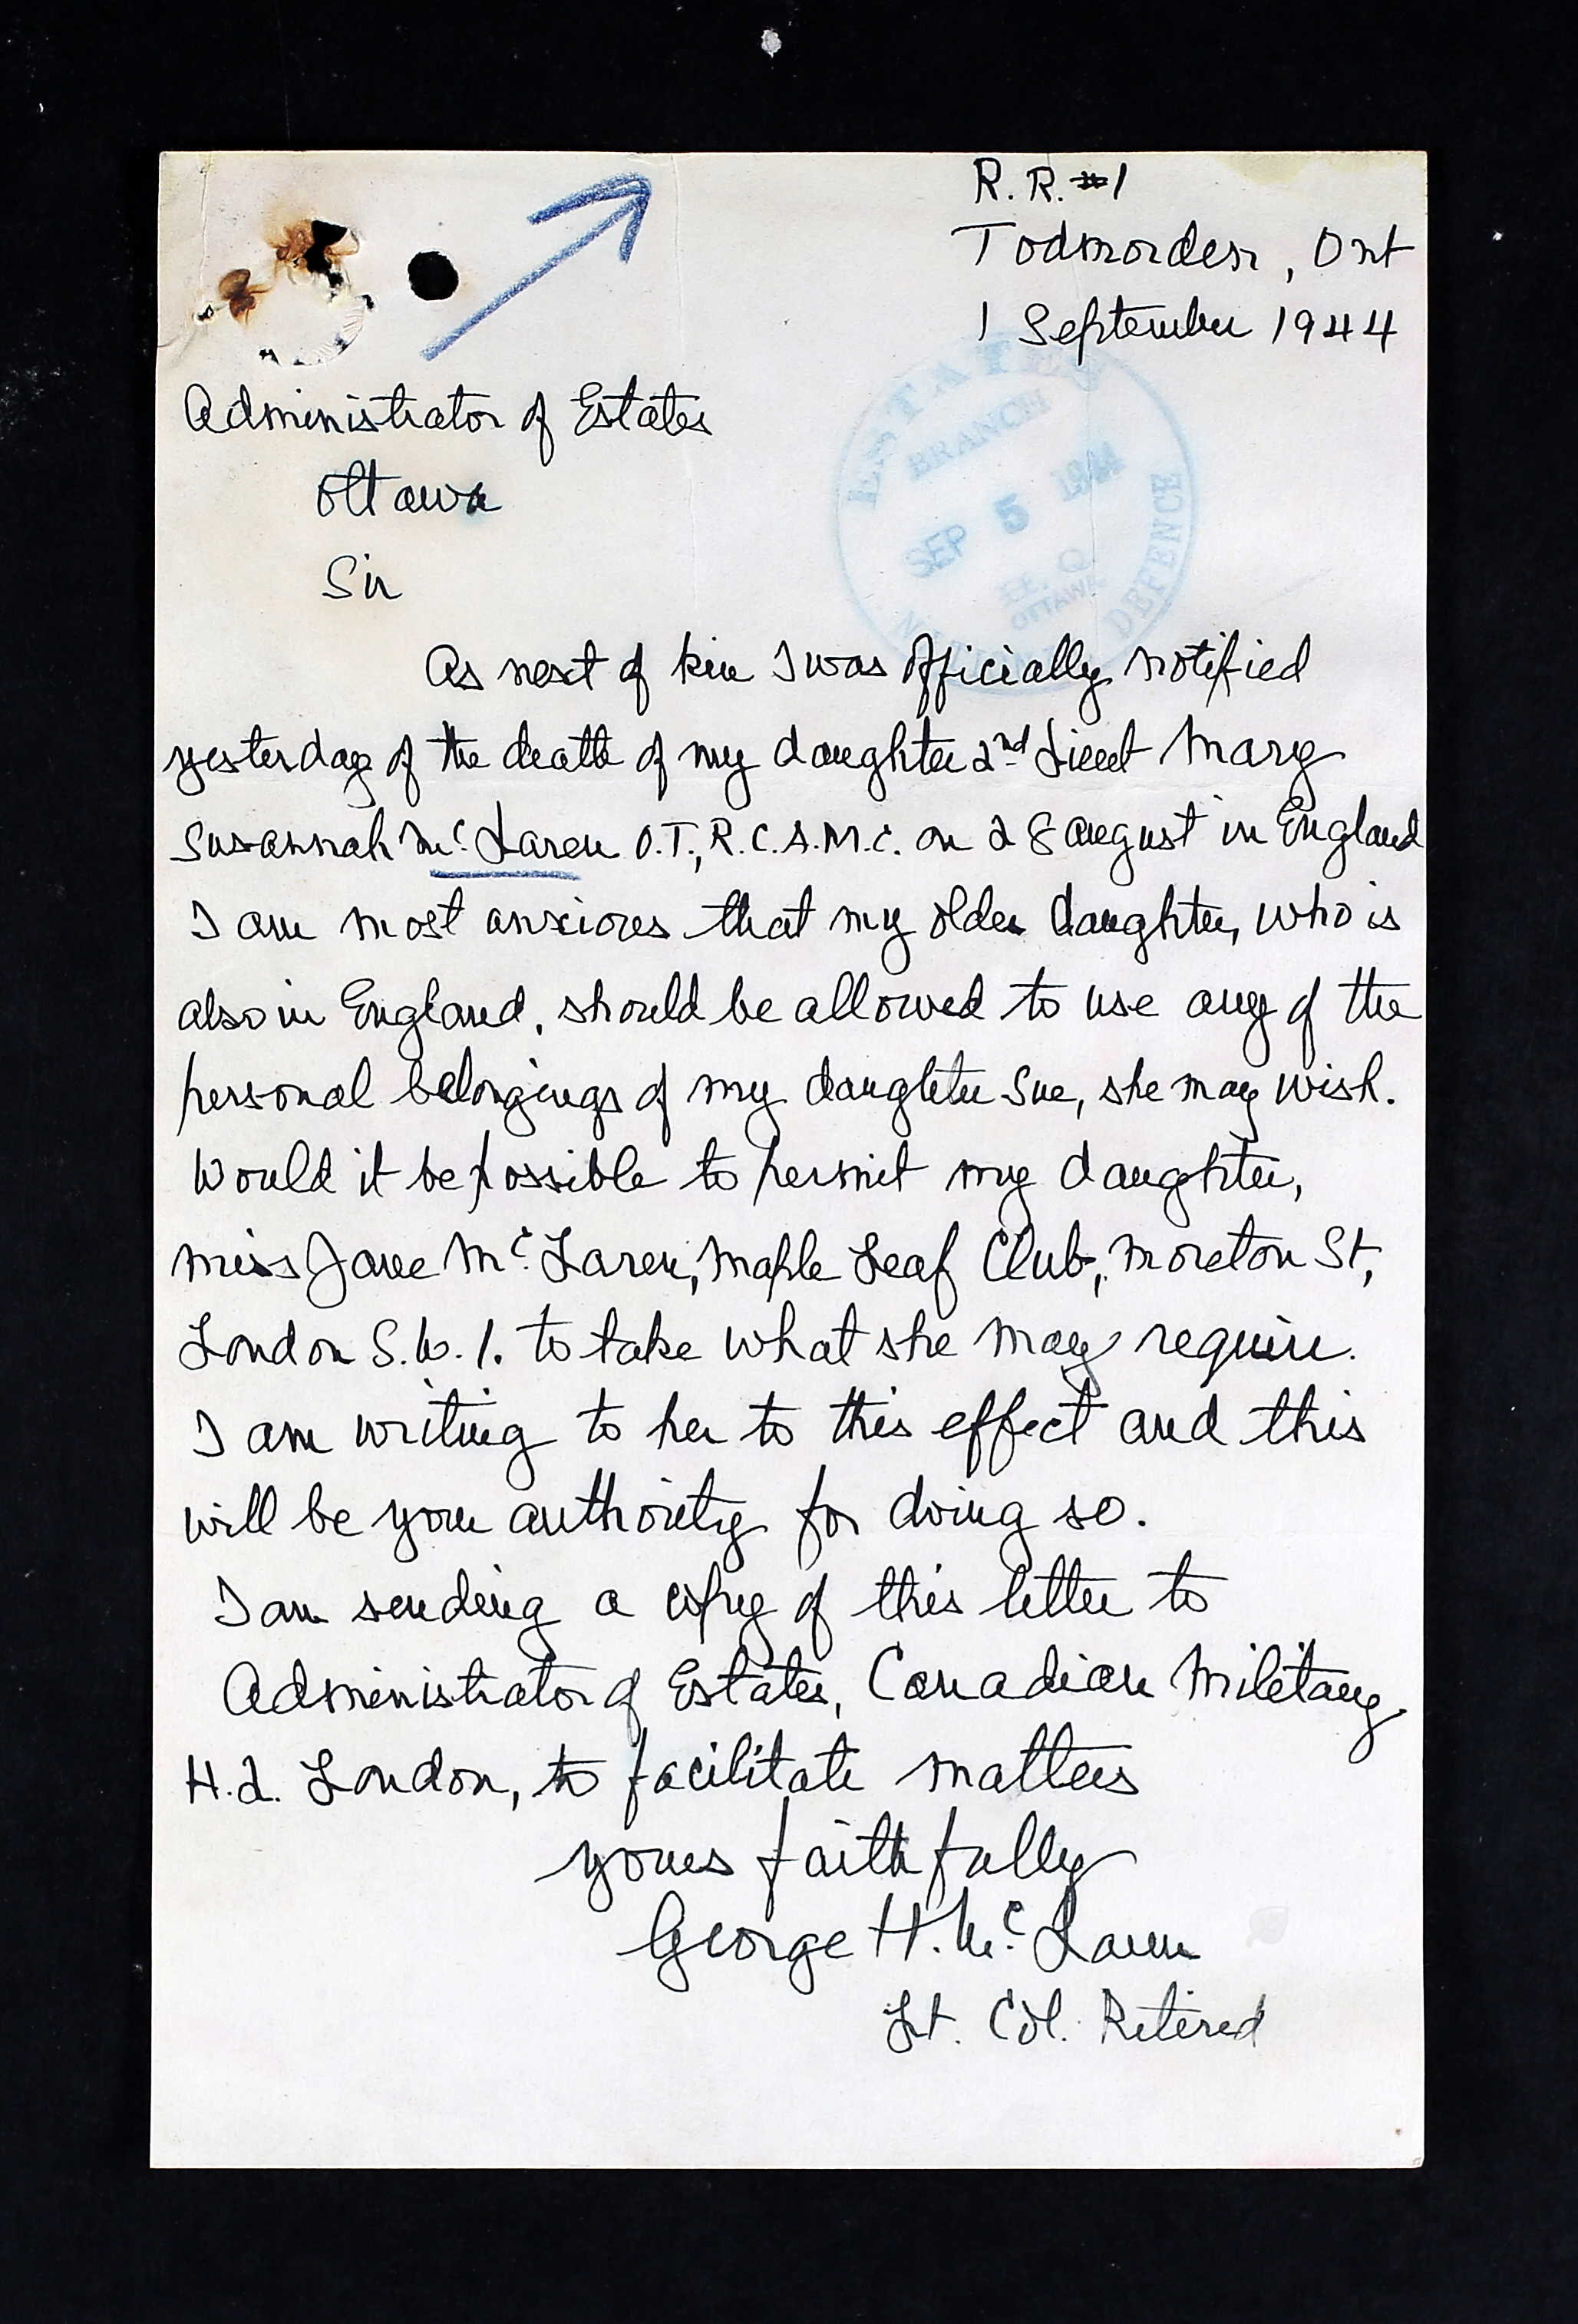 R. R. #1
Todmorden, Ont
1 September 1944
Administrator of Estates
Ottawa
Sir
ESTATES
BRANCH
SEP 5 1944
H. Q.
OTTAWA
DEFENCE
As next of kin I was officially notified
yesterday of the death of my daughter 2nd Lieut Mary
Susannah Mc. Laren O.T., R.C.A.M.C. on 28 August in England
I am most anxious that my older daughter, who is
also in England, should be allowed to use any of the
personal belongings of my daughter Sue, she may wish.
Would it be possible to permit my daughter,
Miss Jane Mc. Laren, Maple Leaf Club, Moreton St,
London S.W.1. to take what she may require.
I am writing to her to this effect and this
will be your authority for doing so.
I am sending a copy of this letter to
Administrator of Estates, Canadian Military
H.Q. London, to facilitate matters
yours faithfully
George H. Mc. Laren
Lt. Col. Retired